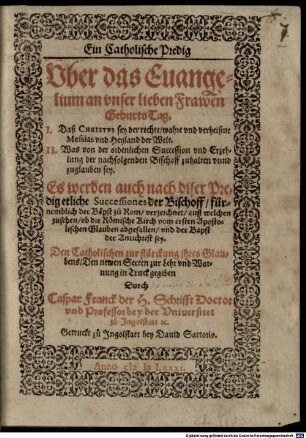 Ein Catholische Predig
Vber das Euange-
lium an vnser lieben Frawen
Geburts Tag.
I. Daß CHRISTVS sey der rechte/wahre vnd verheißne
Messias vnd Heyland der Welt.
II. Was von der ordenlichen Succession vnd Erzeh-
lung der nachfolgenden Bischoff zuhalten vnnd
zuglauben sey.
Es werden auch nach diser Pre-
dig etliche Successiones der Bischoff/für-
nemblich der Bäpst zů Rom/verzeichnet/auß welchen
zusehen/ob die Römische Kirch vom ersten Apostos-
lischen Glauben abgefallen/vnd der Bapst
der Antichrist sey.
Den Catholischen zur stärckung jhres Glau-
bens/Den newen Secten zur Lehr vnd War-
nung in Truck gegeben
Durch
Caspar Franck der H. Schrifft Doctor
vnd Professor bey der Vniuersitet
zů Ingolstatt ꝛc.
Getruckt zů Ingolstatt bey Dauid Sartorio.
Anno cIɔ Iɔ LXXXI.